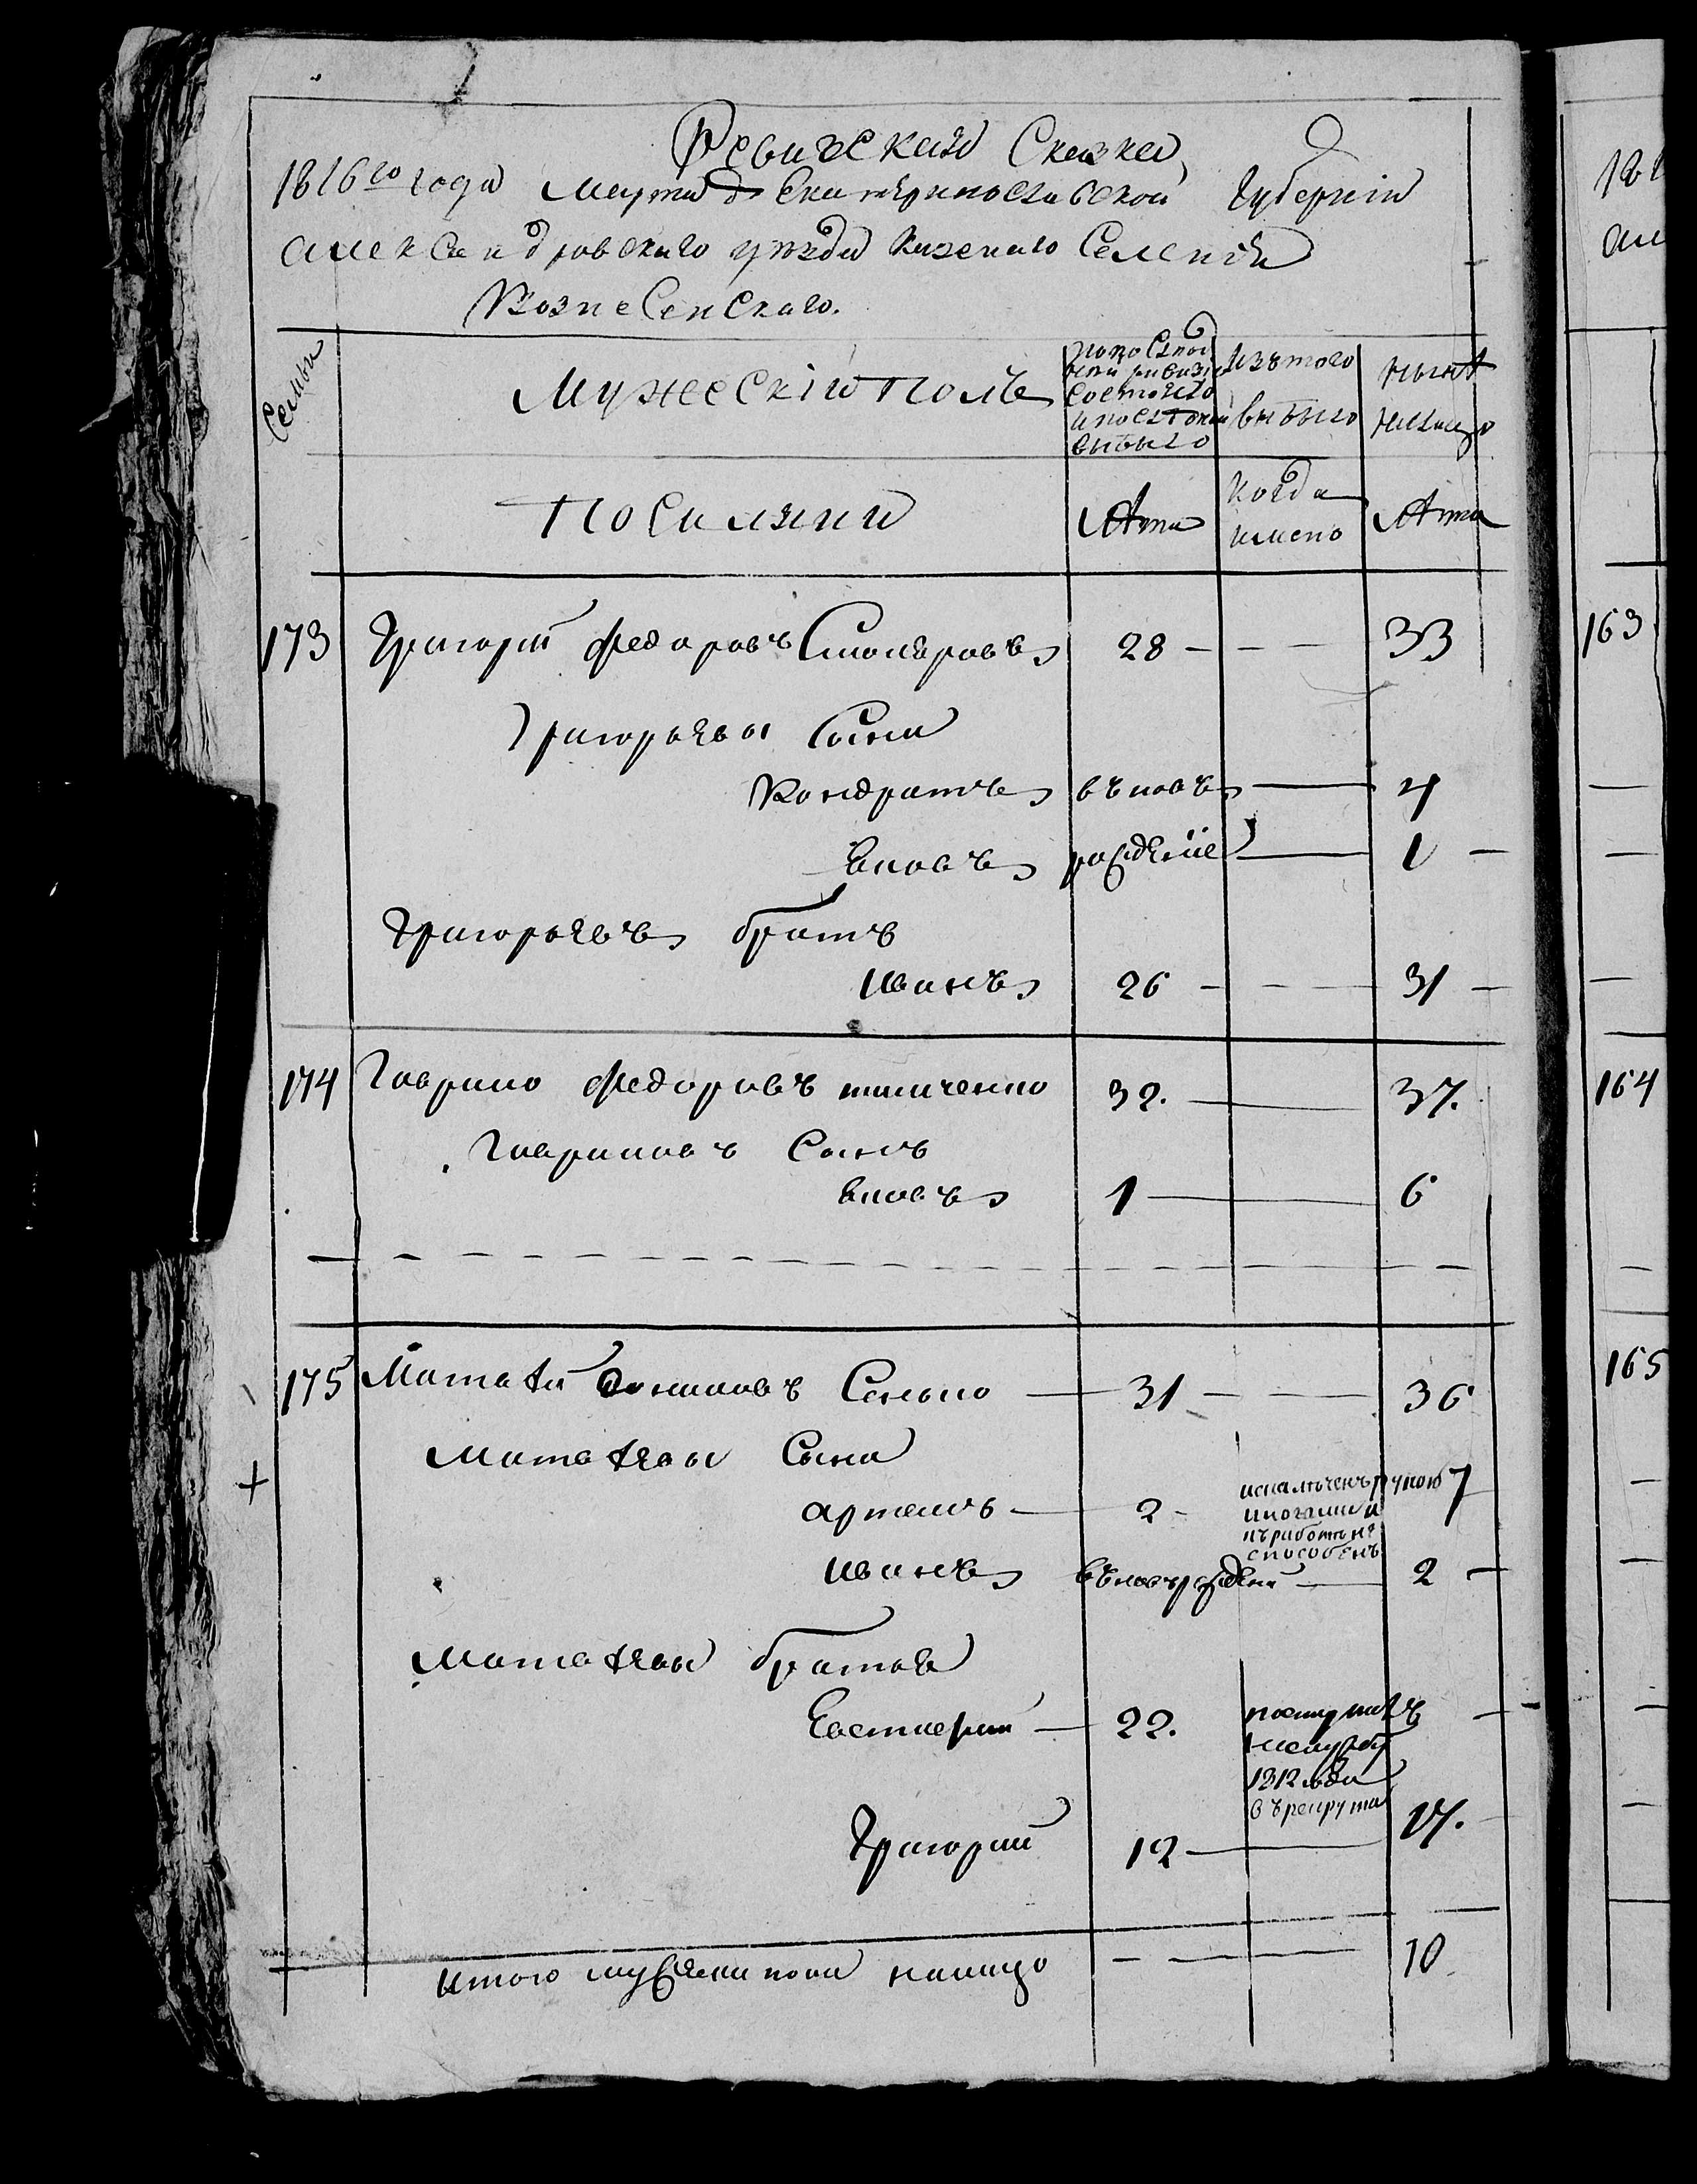 Ревижская Сказка
1816го года Марта д Екатеринославской Губернiи
александровскаго уезда казенаго Селенiя
Вознесенскаго.
Семьи
Мужескiй полъ
по последней ревизiи состояло и после тои выбыло
изътого выбыло
ныне налицо
Поселяни
Лѣта
когда имено
Лѣта
173 Григорий федоровъ 28 - - - 33
Григорьевы Сына
Кондратъ въновь — 4
Яковъ рождение — 1 —
Григорьевъ братъ
иванъ 26 - - - 31 —
174 Гаврило федоровъ 32. — 37.
Гавриловъ Сынъ
Яковъ 1 — 6
175 Матвѣй — 31 - - 36
Матвѣевы Сына
артемъ — 2 - искалѣченъ рукою и ногами и къ работы не способенъ 7
иванъ въновь рождени — 2 -
Матвѣевы братья
— 22. поступилъ на службу 1812 года въ рекрута
Григорий 12 — 17.
итого мужеска пола налицо - - — 10
181
алѣ
163
164
165